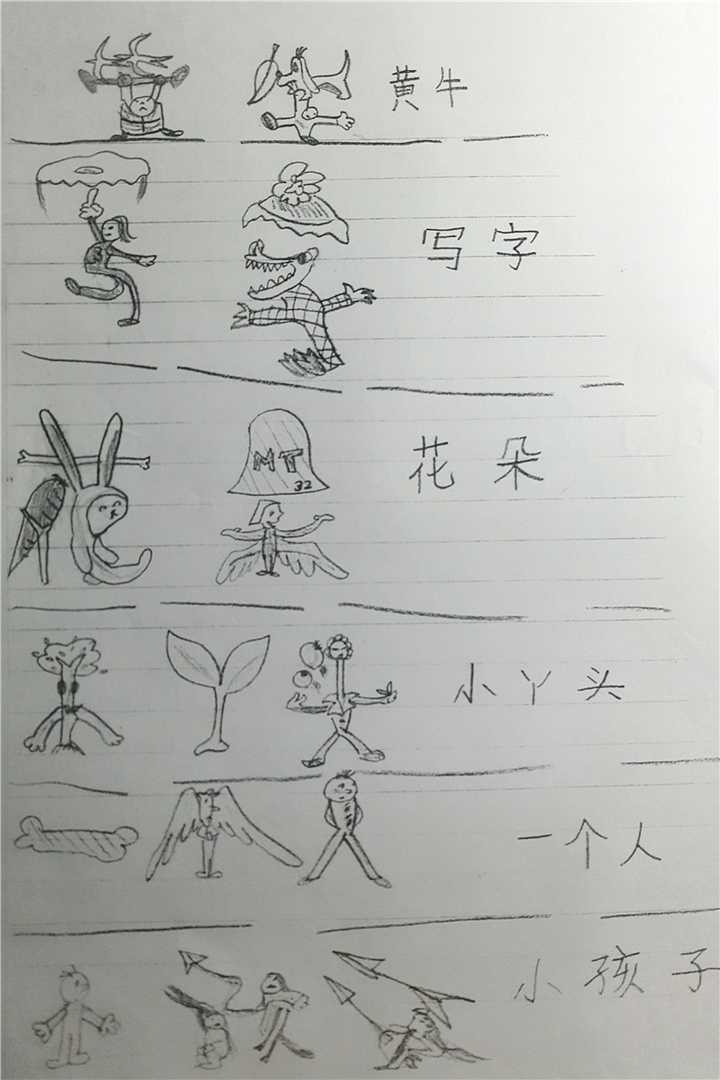 黄牛
写字
MT
32
花朵
小丫头
一个人
小孩子